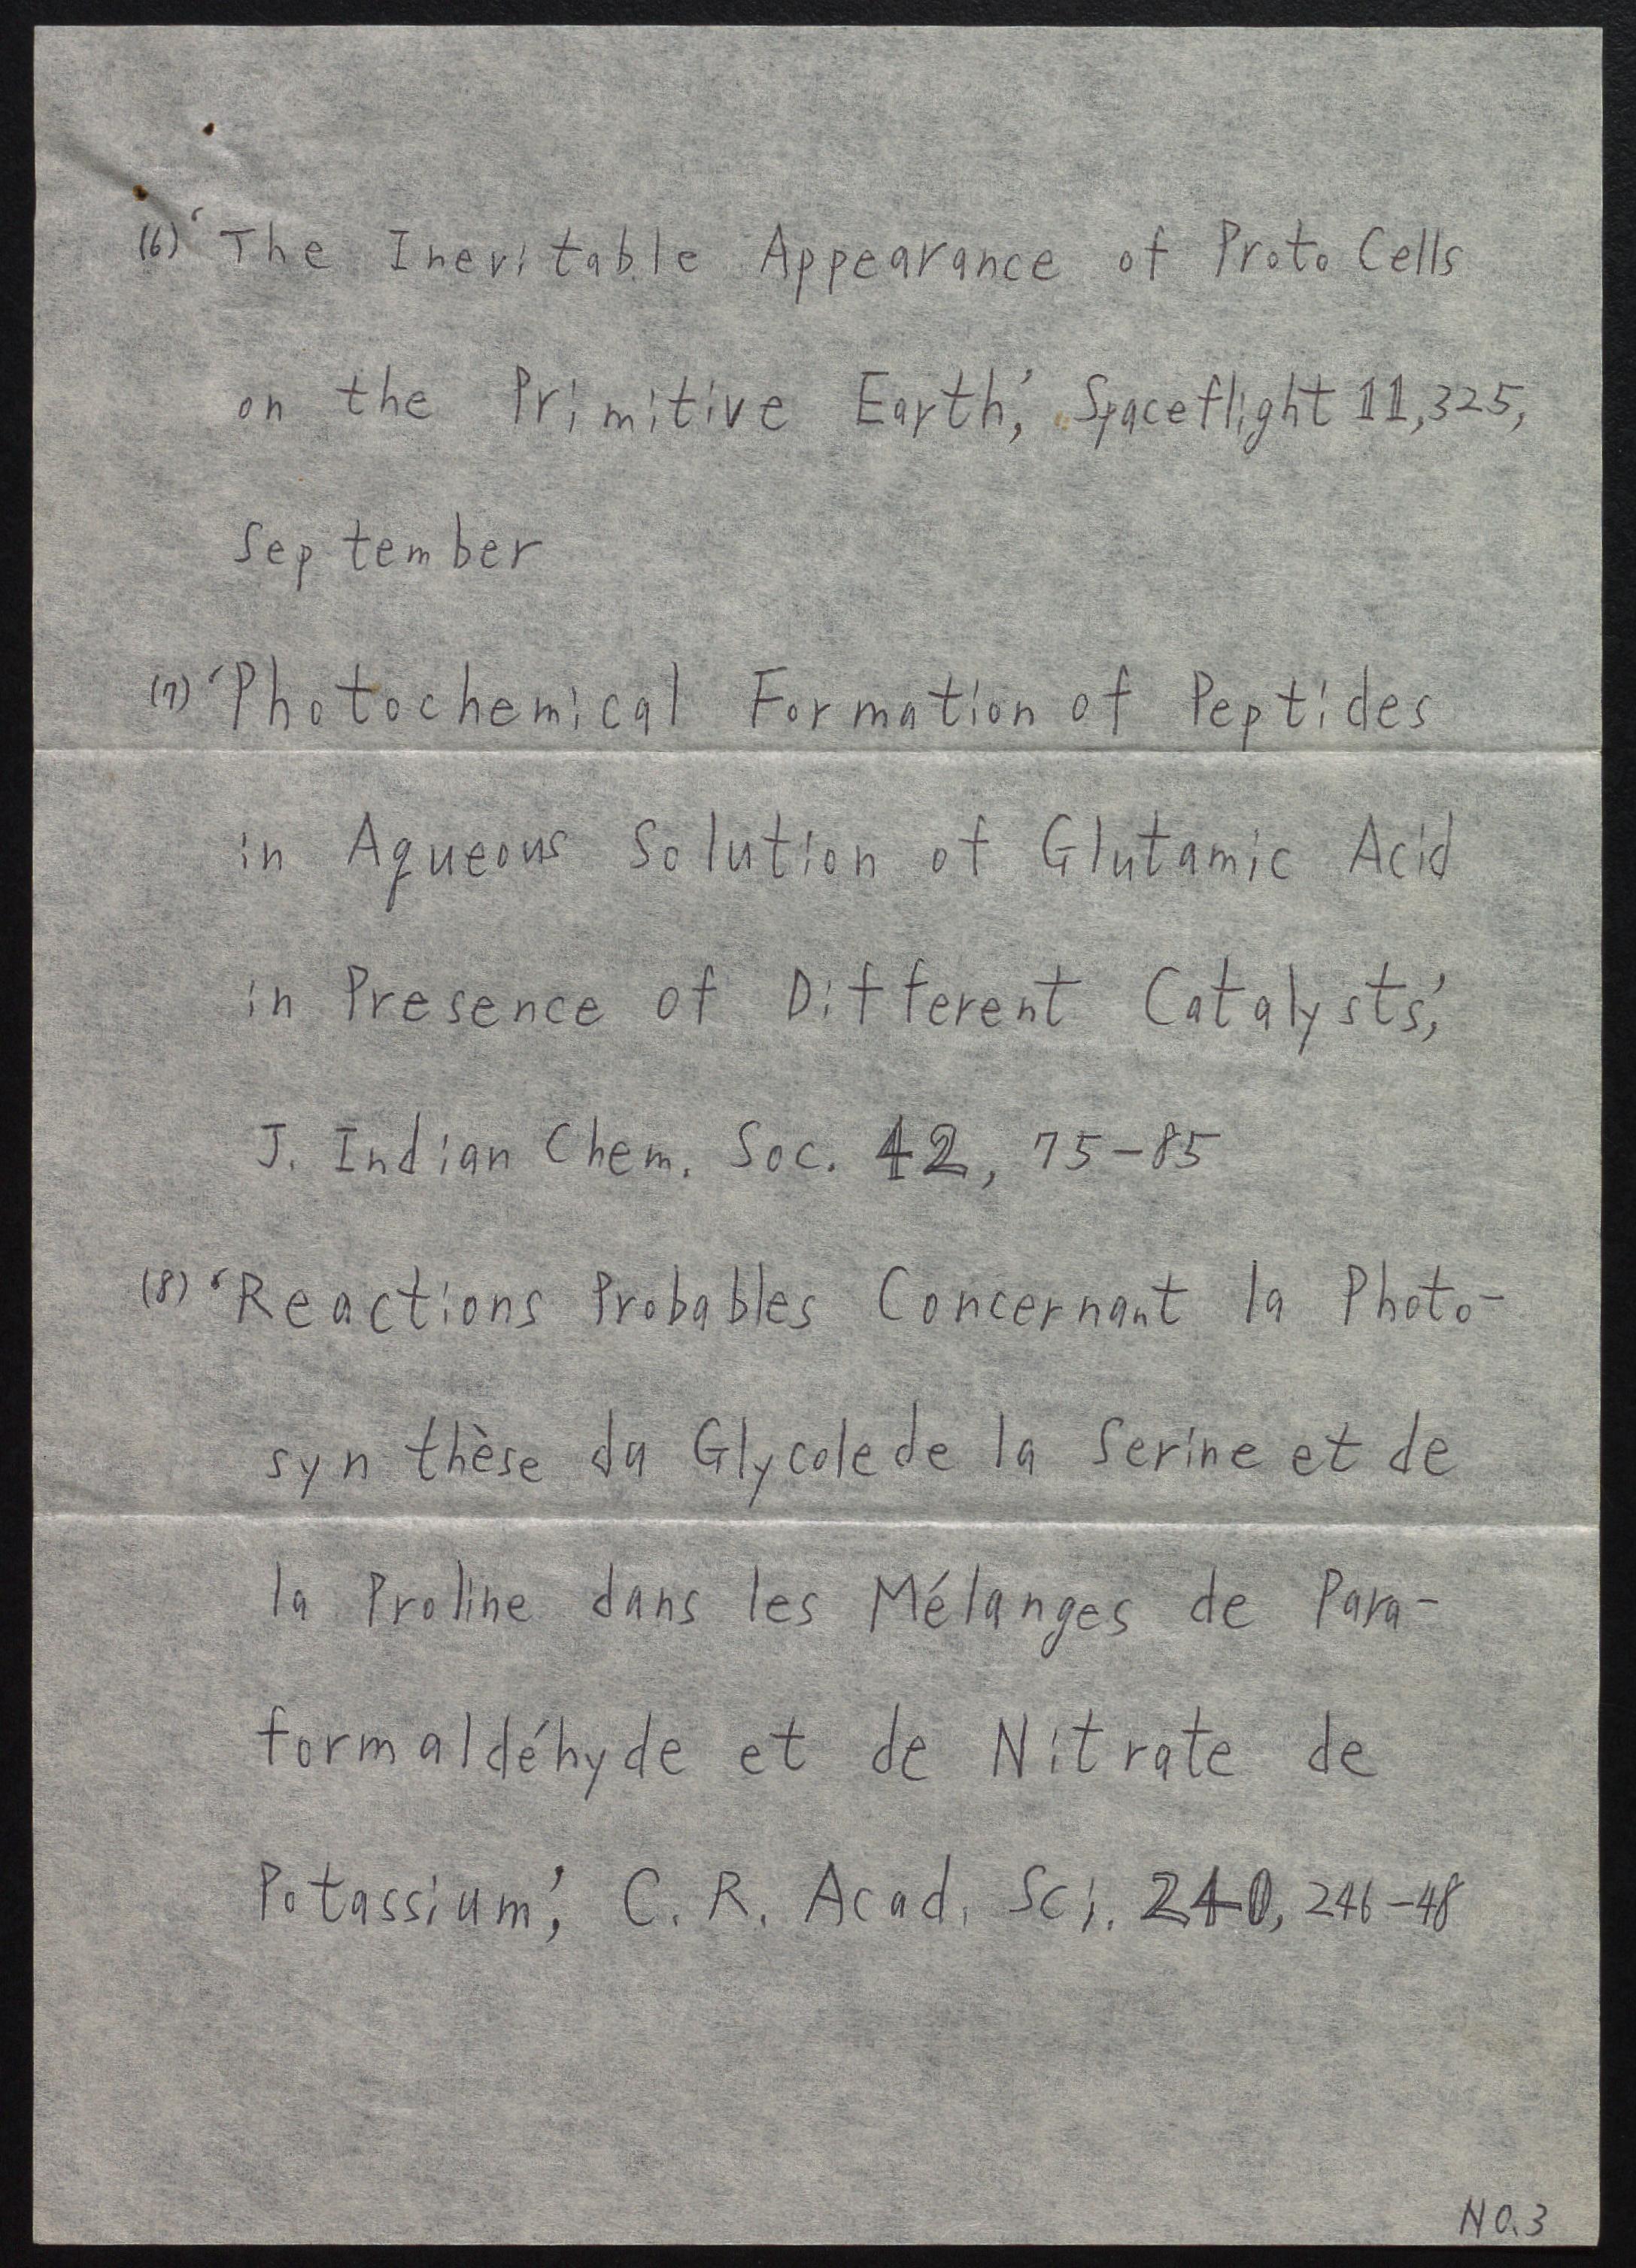 (6) 'The Inevitable Appearance of Proto Cells
on the Primitive Earth', Spaceflight 11, 325,
September
(7) 'Photochemical Formation of Peptides
in Aqueous Solution of Glutamic Acid
in Presence of Different Catalysts',
J. Indian Chem. Soc. 42, 75-85
(8) 'Reactions Probables Concernant la Photo-
synthèse du Glycolede la Serine et de
la Proline dans les Mélanges de Para-
formaldéhyde et de Nitrate de
Potassium', C. R. Acad. Sci. 240, 246-48
NO.3